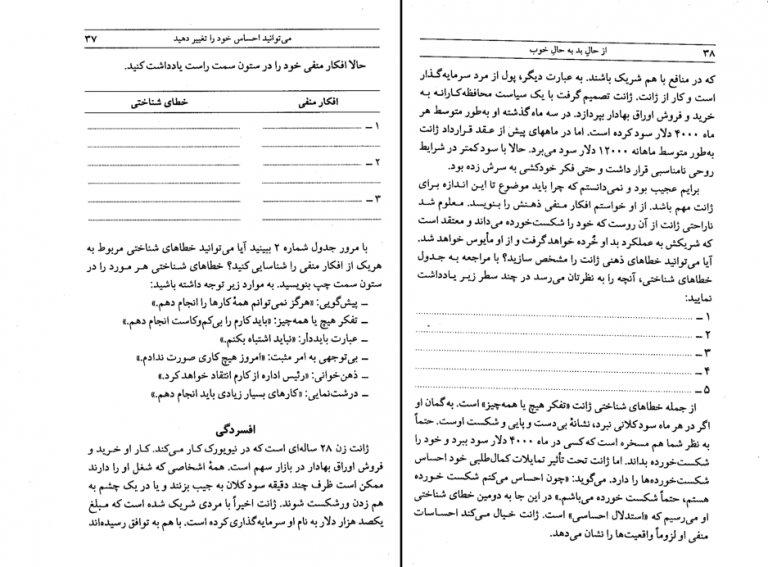 می‌توانید احساس خود را تغییر دهید ۳۷
حالا افکار منفی خود را در ستون سمت راست یادداشت کنید.
افکار منفی خطای شناختی
۱ ـ
۲ ـ
۳ ـ
با مرور جدول شماره ۲ ببینید آیا می‌توانید خطاهای شناختی مربوط به
هریک از افکار منفی را شناسایی کنید؟ خطاهای شناختی هر مورد را در
ستون سمت چپ بنویسید. به موارد زیر توجه داشته باشید:
ـ پیش‌گویی: «هرگز نمی‌توانم همهٔ کارها را انجام دهم.»
ـ تفکر هیچ یا همه‌چیز: «باید کارم را بی‌کم‌وکاست انجام دهم.»
ـ عبارت بایددار: «نباید اشتباه بکنم.»
ـ بی‌توجهی به امر مثبت: «امروز هیچ کاری صورت ندادم.»
ـ ذهن‌خوانی: «رئیس اداره از کارم انتقاد خواهد کرد.»
ـ درشت‌نمایی: «کارهای بسیار زیادی باید انجام دهم.»
افسردگی
ژانت زن ۲۸ ساله‌ای است که در نیویورک کار می‌کند. کار او خرید و
فروش اوراق بهادار در بازار سهم است. همهٔ اشخاصی که شغل او را دارند
ممکن است ظرف چند دقیقه سود کلان به جیب بزنند و یا در یک چشم به
هم زدن ورشکست شوند. ژانت اخیراً با مردی شریک شده است که مبلغ
یکصد هزار دلار به نام او سرمایه‌گذاری کرده است. با هم به توافق رسیده‌اند
۳۸ از حالِ بد به حالِ خوب
که در منافع با هم شریک باشند. به عبارت دیگر، پول از مرد سرمایه‌گذار
است و کار از ژانت. ژانت تصمیم گرفت با یک سیاست محافظه‌کارانه به
خرید و فروش اوراق بهادار بپردازد. در سه ماه گذشته او به‌طور متوسط هر
ماه ۴۰۰۰ دلار سود کرده است. اما در ماههای پیش از عقد قرارداد ژانت
به‌طور متوسط ماهانه ۱۲۰۰۰ دلار سود می‌برد. حالا با سود کمتر در شرایط
روحی نامناسبی قرار داشت و حتی فکر خودکشی به سرش زده بود.
برایم عجیب بود و نمی‌دانستم که چرا باید موضوع تا این اندازه برای
ژانت مهم باشد. از او خواستم افکار منفی ذهنش را بنویسد. معلوم شد
ناراحتی ژانت از آن روست که خود را شکست‌خورده می‌داند و معتقد است
که شریکش به عملکرد بد او خُرده خواهد گرفت و از او مأیوس خواهد شد.
آیا می‌توانید خطاهای ذهنی ژانت را مشخص سازید؟ با مراجعه به جدول
خطاهای شناختی، آنچه را به نظرتان می‌رسد در چند سطر زیر یادداشت
نمایید:
۱ ـ
۲ ـ
۳ ـ
۴ ـ
۵ ـ
از جمله خطاهای شناختی ژانت «تفکر هیچ یا همه‌چیز» است. به‌گمان او
اگر در هر ماه سود کلانی نبرد، نشانهٔ بی‌دست و پایی و شکست اوست. حتماً
به نظر شما هم مسخره است که کسی در ماه ۴۰۰۰ دلار سود ببرد و خود را
شکست‌خورده بداند. اما ژانت تحت تأثیر تمایلات کمال‌طلبی خود احساس
شکست‌خورده‌ها را دارد. می‌گوید: «چون احساس می‌کنم شکست خورده
هستم، حتماً شکست خورده می‌باشم.» در این جا به دومین خطای شناختی
او می‌رسیم که «استدلال احساسی» است. ژانت خیال می‌کند احساسات
منفی او لزوماً واقعیت‌ها را نشان می‌دهد.